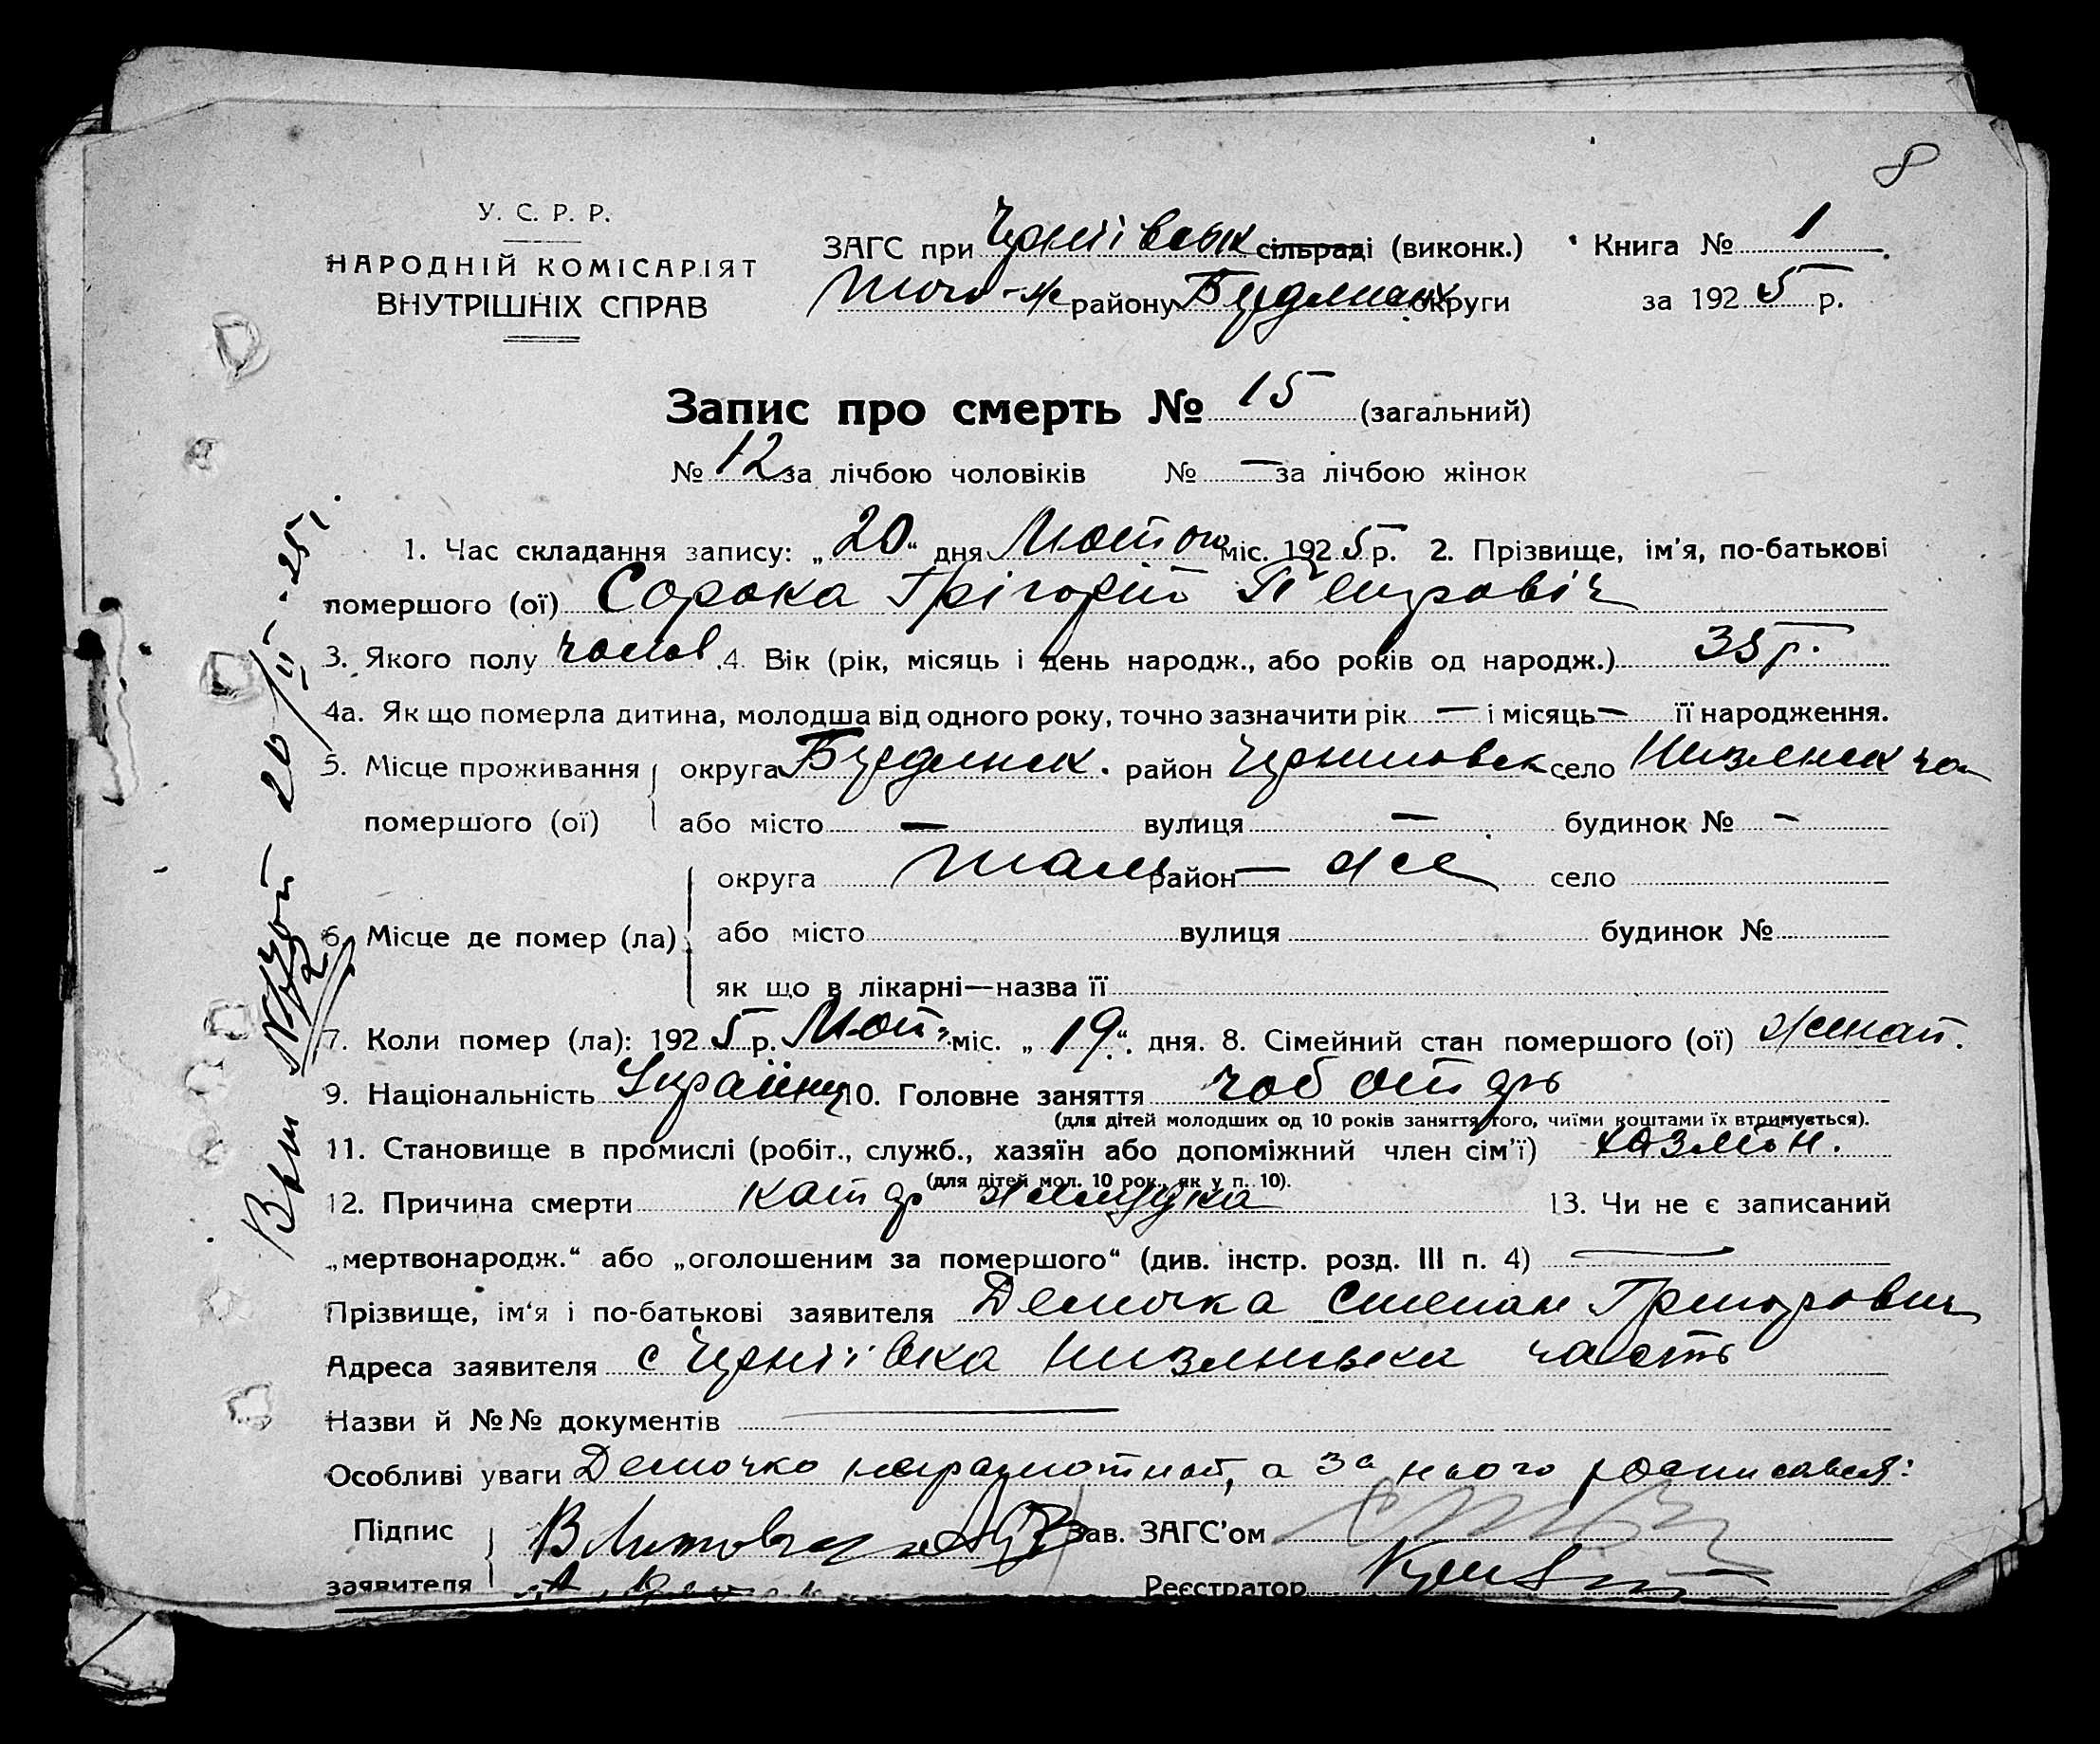 8
У. С. Р. Р.
НАРОДНІЙ КОМІСАРІЯТ
ВНУТРІШНІХ СПРАВ
ЗАГС при сільраді (виконк.) Книга № 1
того-же району округи за 1925 р.
Запис про смерть № 15 (загальний)
№ 12 за лічбою чоловіків № — за лічбою жінок
1. Час складання запису: „20“ дня Лютого міс. 1925 р. 2. Прізвище, ім'я, по-батькові
помершого (ої) Сорока Грігорій Петровіч
3. Якого полу чолов. 4. Вік (рік, місяць і день народж., або років од народж.) р.
4а. Як що померла дитина, молодша від одного року, точно зазначити рік — і місяць — її народження.
5. Місце проживання округа район село
помершого (ої) або місто — вулиця — будинок № -
округа там район — же село
6. Місце де помер (ла) або місто вулиця будинок №
як що в лікарні—назва її
7. Коли помер (ла): 1925 р. Лют. міс. „19“. дня. 8. Сімейний стан помершого (ої) женат.
9. Національність 10. Головне заняття чоботарь
(для дітей молодших од 10 років заняття того, чиїми коштами їх втримується).
11. Становище в промислі (робіт., служб., хазяїн або допоміжний член сім'ї)
(для дітей мол. 10 рок., як у п. 10).
12. Причина смерти катар желудка 13. Чи не є записаний
„мертвонародж.“ або „оголошеним за помершого“ (див. інстр. розд. III п. 4) —
Прізвище, ім'я і по-батькові заявителя Демочка Степан Григорович
Адреса заявителя с часть
Назви й №№ документів —
Особливі уваги Демочко неграмотной, а за нього росписався:
Підпис Зав. ЗАГС'ом
заявителя Реєстратор
20/II-25 г.